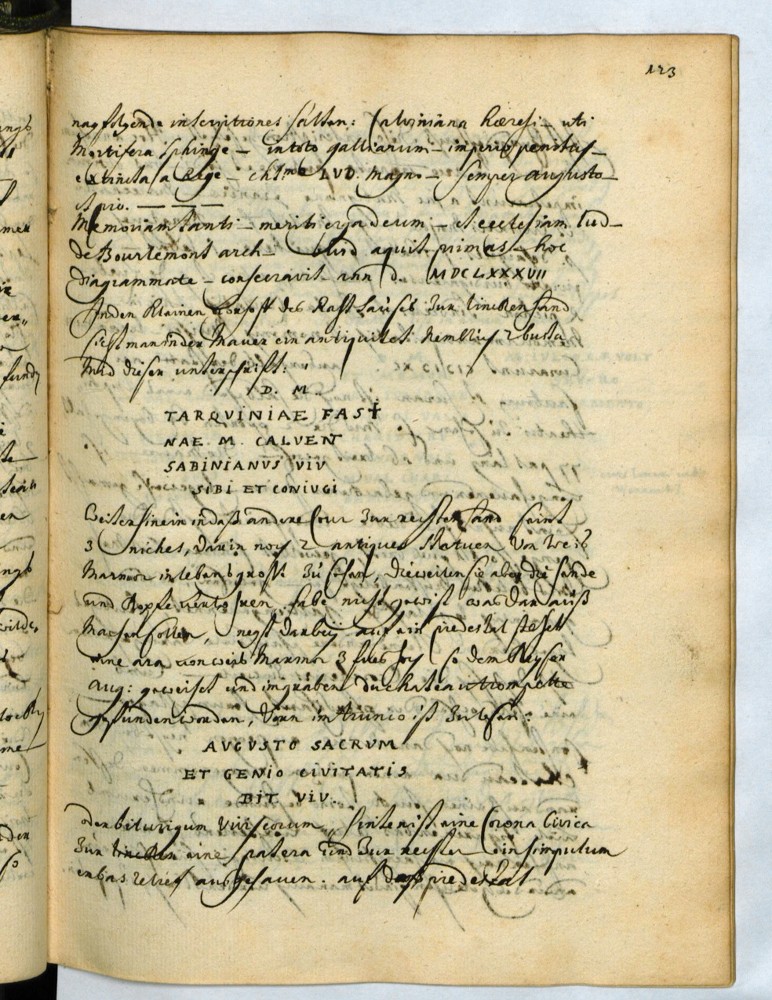 123
nachfolgende inscriptiones halten: Calviniana hæresi – uti
Mortifera sphinge – in toto galliarum – imperio penitus –
extincta a Rege – chtmo LVD. Magno – semper augusto –
et pio. — — —
Memoriam tanti – meriti erga deum – et ecclesiam Lud –
de Bourlemont arch – aquit. primas – hoc
diagrammate – consecravit – ann d. MDCLXXXVII
In den kleinen Vorhoff des Rasthauses zur lincken hand
siehet man in der Mauer ein antiquitet. Nemblich 2 busta
und dieser unterschrifft:
D. M.
TARQUINIAE FAST
NAE. M. CALVENT
SABINIANVS VIV
SIBI ET CONIVGI
Weiter hinein in daß andere Cour zur rechten hand seint
3 niches, darin noch 2 antique Statuen von weis
Marmor in lebens größe zu sehen, dieweilen sie aber die hände
und Köpfe verlohren, habe nicht gewist was daraus
Machen sollen, negst darbey auf ein piedestal stehet
eine ara von weis Marmor 3 fues hoch so dem Keyser
Aug: geweihet und im graben du chateau trompette
gefunden worden, vorn im trunco ist zu lesen:
AUGUSTO SACRVM
ET GENIO CIVITATIS
BIT VIV.
oder biturigum Viviscorum, hinten ist eine Corona Civica
zur lincken eine patera und zur rechten ein simpulum
en bas relief ausgehauen. auf das piedestal